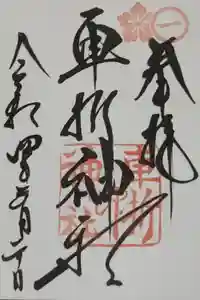 奉拝
車折神社
車折神社
令和四年二月二十日